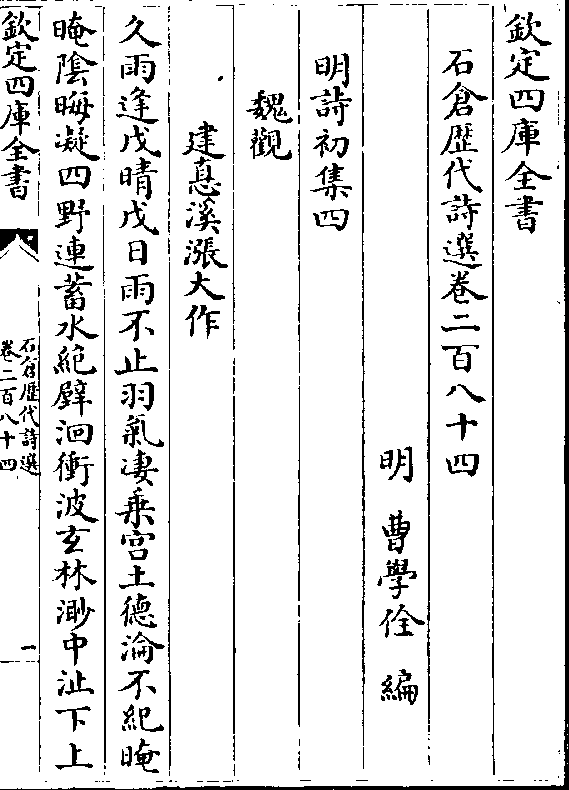 欽定四庫全書
石倉歷代詩選卷二百八十四
明 曹學佺 編
明詩初集四
魏觀
建息溪漲大作
久雨逢戊晴戊日雨不止羽氣淒乗宫土德淪不紀晻
晻陰晦凝四野連蓄水絶壁洄衝波玄林渺中沚下上
欽定四庫全書
石倉歷代詩選
卷二百八十四
一